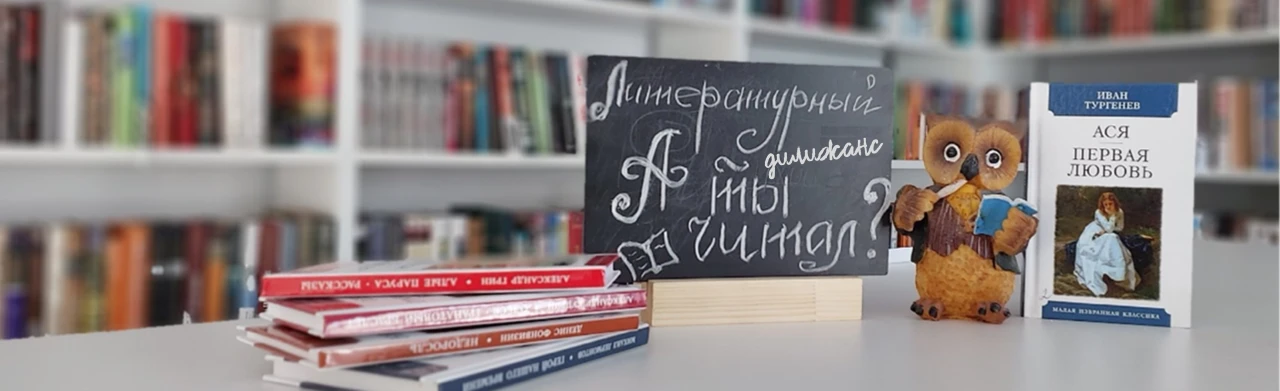 Литературный
дилижанс
А ты
читал?
ИВАН
ТУРГЕНЕВ
АСЯ
ПЕРВАЯ
ЛЮБОВЬ
МАЛАЯ ИЗБРАННАЯ КЛАССИКА
АЛЕКСАНДР ГРИН • АЛЫЕ ПАРУСА • РАССКАЗЫ
АЛЕКСАНДР ГРАНАТОВЫЙ БРАСЛЕТ
ДЕНИС ФОНВИЗИН • НЕДОРОСЛЬ
МИХАИЛ ЛЕРМОНТОВ • ГЕРОЙ НАШЕГО ВРЕМЕНИ